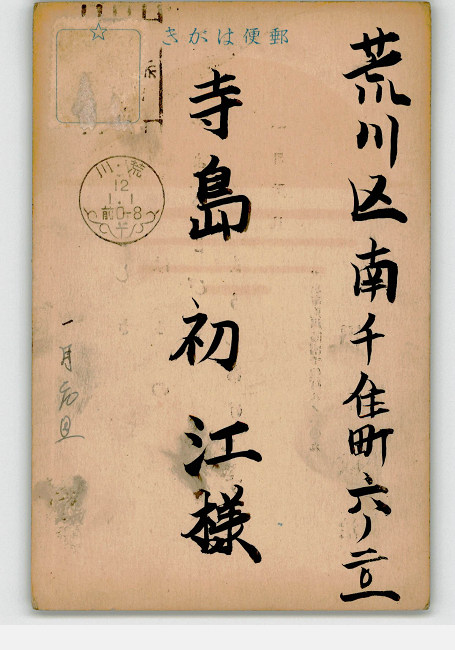 郵便はがき
荒川区南千住町六ノ二〇一
寺島初江様
荒川
12
1.1
前0-8
一月元旦